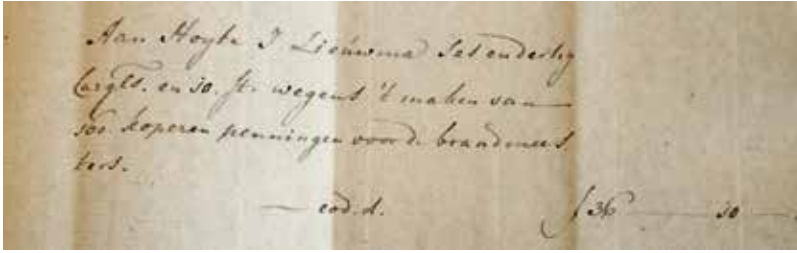 Aan Hoyte J Lieuwma Ses en dertig
Cargls. en 10. st. wegens 't maken van
100. koperen penningen voor de brandmees
ters.
— eod. d. ƒ 36 — 10 —